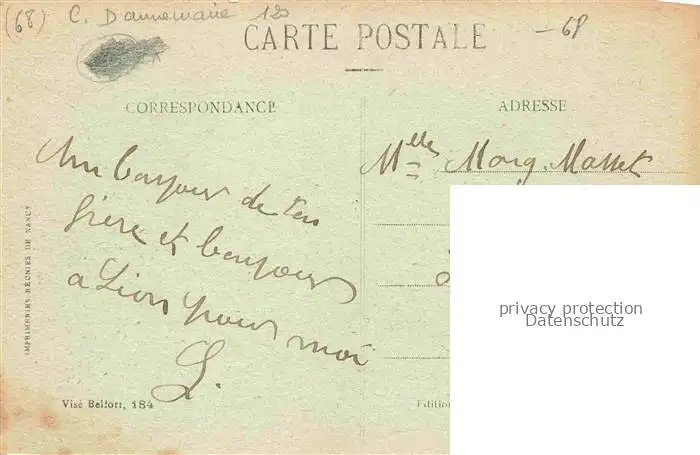 (68) C. Dannemarie 120
- 68
CARTE POSTALE
CORRESPONDANCE
ADRESSE
Un bonjour de ton
frère et bonjour
a Lion pour moi
L.
Melles Marg. Masset
IMPRIMERIES RÉUNIES DE NANCY
Visé Belfort, 184
Editio
privacy protection
Datenschutz